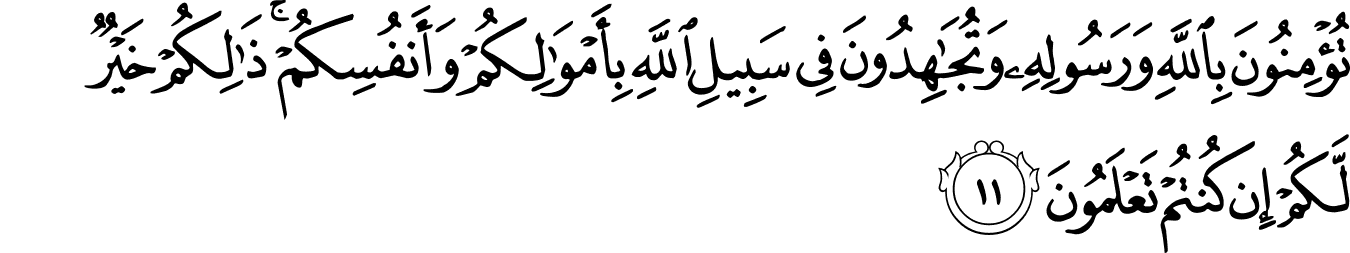 تُؤْمِنُونَ بِٱللَّهِ وَرَسُولِهِۦ وَتُجَـٰهِدُونَ فِى سَبِيلِ ٱللَّهِ بِأَمْوَٰلِكُمْ وَأَنفُسِكُمْ ۚ ذَٰلِكُمْ خَيْرٌ
لَّكُمْ إِن كُنتُمْ تَعْلَمُونَ ١١